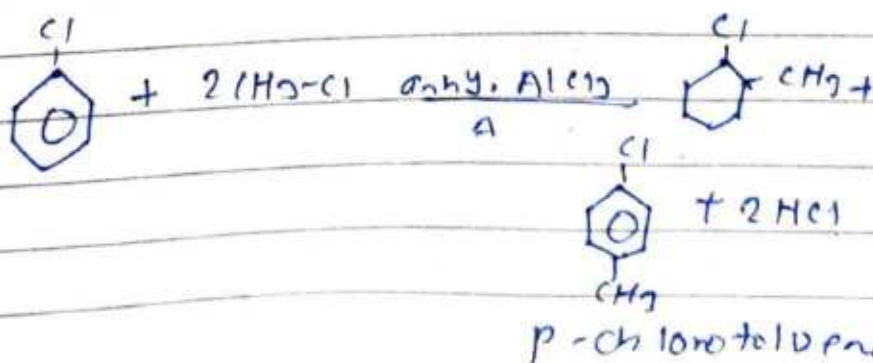 Cl
+ 2CH3-Cl anhy. AlCl3 Δ
Cl
CH3 +
Cl
+ 2HCl
CH3
p-chlorotoluen